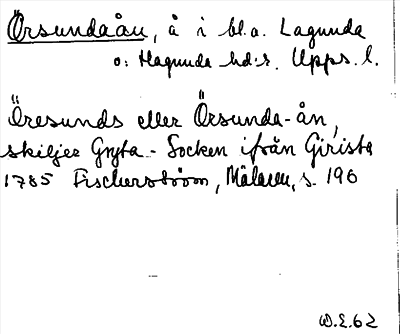 Örsundaån, å i bl.a. Lagunda
o. Hagunda hd:r. Upps. l.
Öresunds eller Örsunda-ån,
skiljer Gryta-Socken ifrån Girista
1785 Fischerström, Mälaren, s. 190
W.E.62